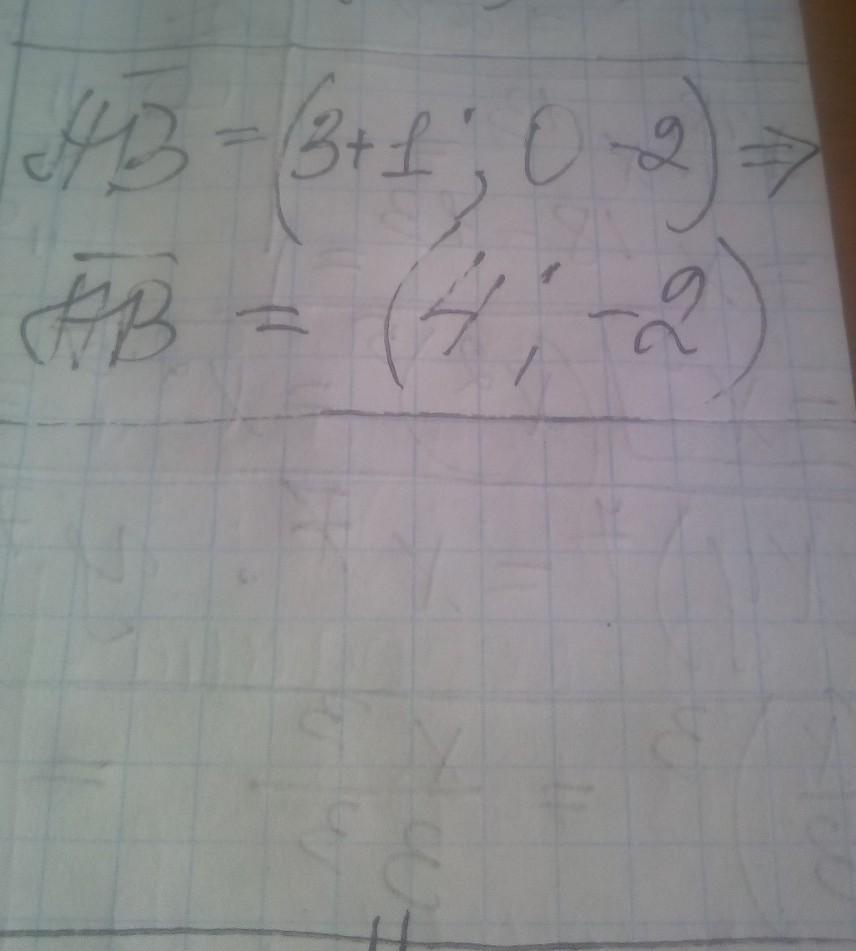 AB = (3+1; 0-2) ⇒
AB = (4; -2)